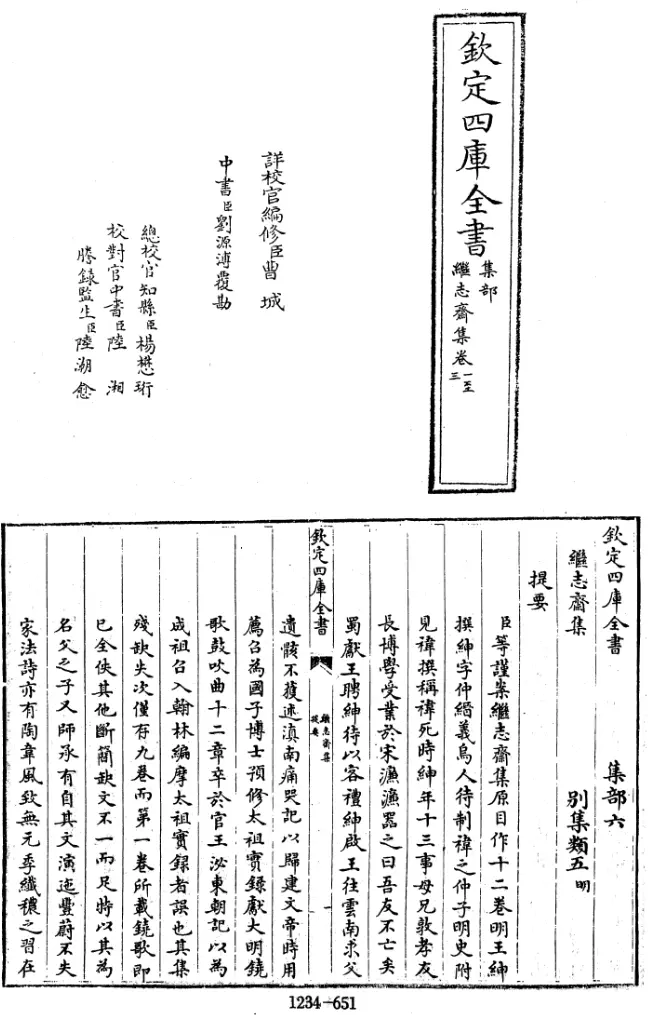 欽定四庫全書
集部
繼志齋集卷一至三
詳校官編修臣曹城
中書臣劉源溥覆勘
總校官知縣臣楊懋珩
校對官中書臣陸湘
謄錄監生臣陸湖愈
欽定四庫全書 集部六
繼志齋集 別集類五明
提要
臣等謹案繼志齋集原目作十二卷明王紳
撰紳字仲縉義烏人待制禕之仲子明史附
見禕撰稱禕死時紳年十三事母兄敦孝友
長博學受業於宋濂濂器之曰吾友不亡矣
蜀獻王聘紳待以客禮紳啟王往雲南求父
欽定四庫全書
繼志齋集
提要
一
遺骸不獲述滇南痛哭記以歸建文帝時用
薦召為國子博士預修太祖實錄獻大明鐃
歌鼓吹曲十二章卒於官王泌東朝記以為
成祖召入翰林編摩太祖實錄者誤也其集
殘缺失次僅存九卷而第一卷所載鐃歌即
已全佚其他斷簡缺文不一而足特以其為
名父之子又師承有自其文演迤豐蔚不失
家法詩亦有陶韋風致無元季纖穠之習在
1234-651